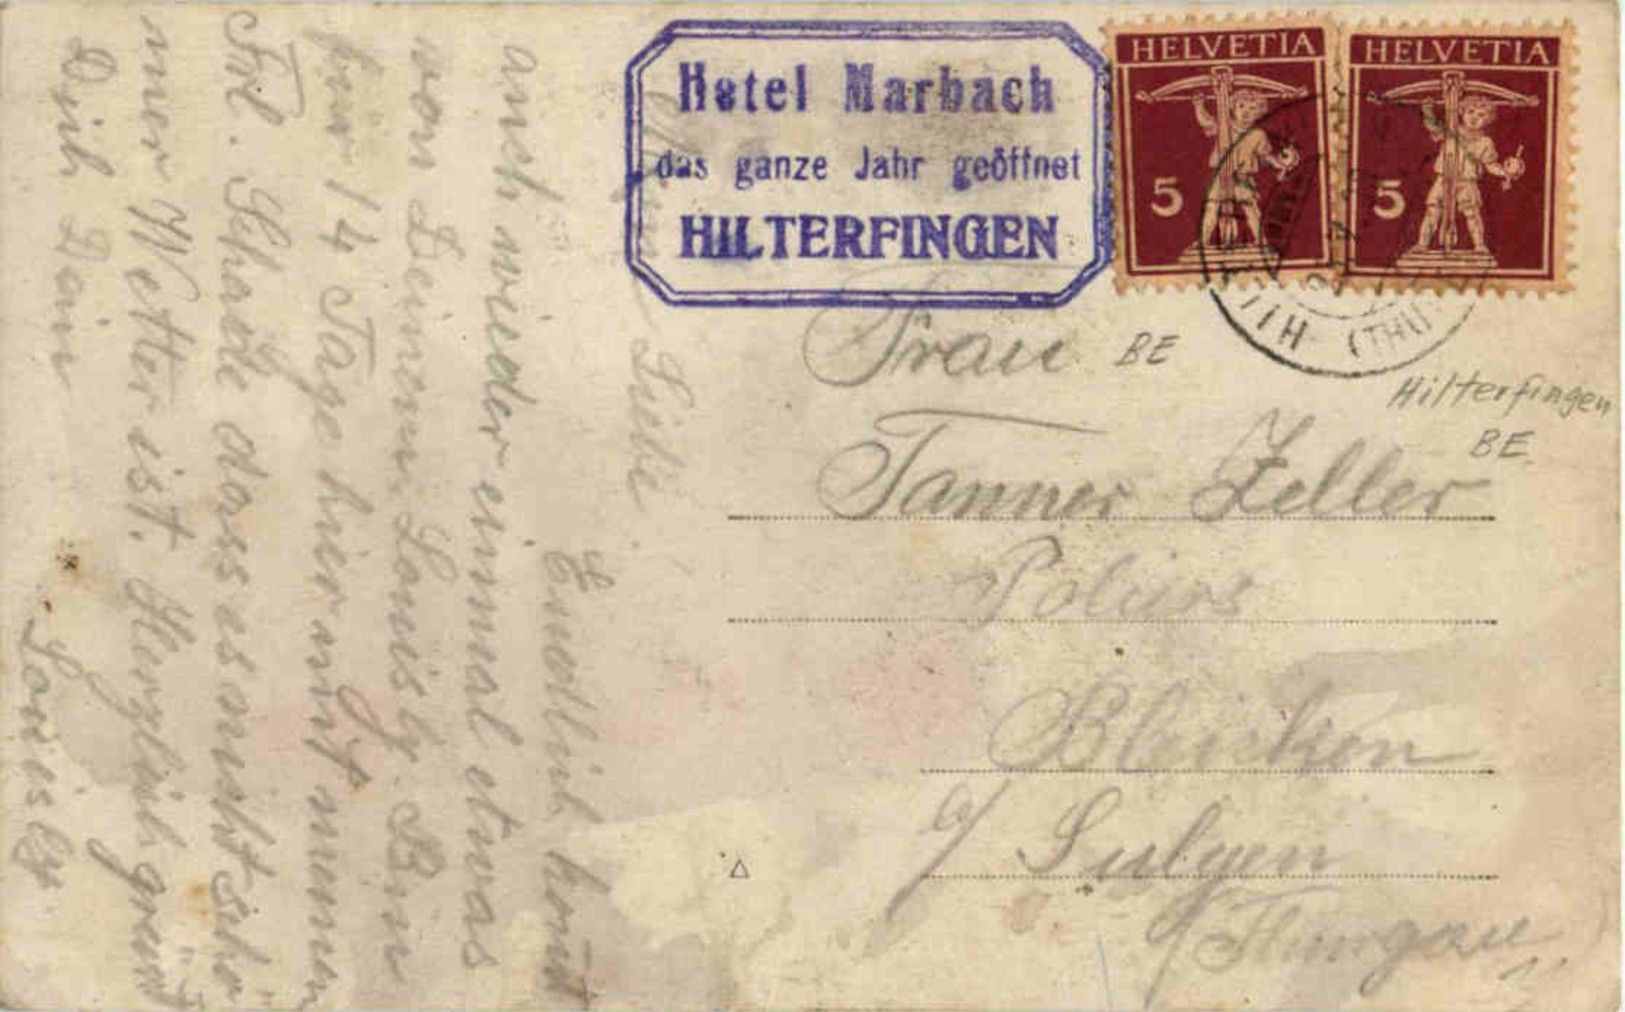 Hotel Marbach
das ganze Jahr geöffnet
HILTERFINGEN
HELVETIA
5
HELVETIA
5
HILTERFINGEN (THU
BE
Hilterfingen
BE
Frau
Tanner Zeller
Poliers
Bleiken
b/ Sulgen
Thurgau
Liebe
Endlich komt
auch wieder einmal etwas
von Deinem Louisly. Bin
für 14 Tage hier mit meinem
Frl. Schade dass es nicht schön
mer Wetter ist. Herzlich grüsst
Dich Dein
Louisly